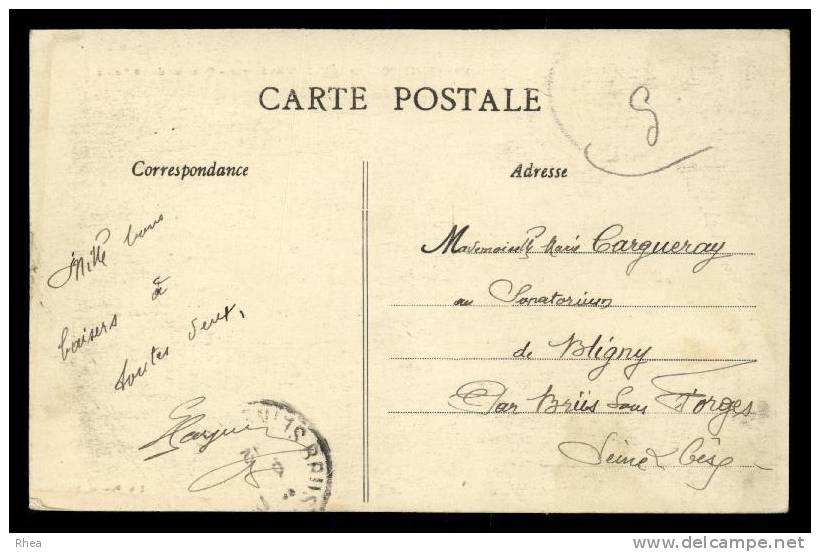 CARTE POSTALE
Correspondance
Adresse
Mille bons
baisers à
toutes deux,
Mademoiselle Marie Cargueray
au Sanatorium
de Bligny
Par Briis sous Forges
Seine & Oise
Rhea
delcampe.net